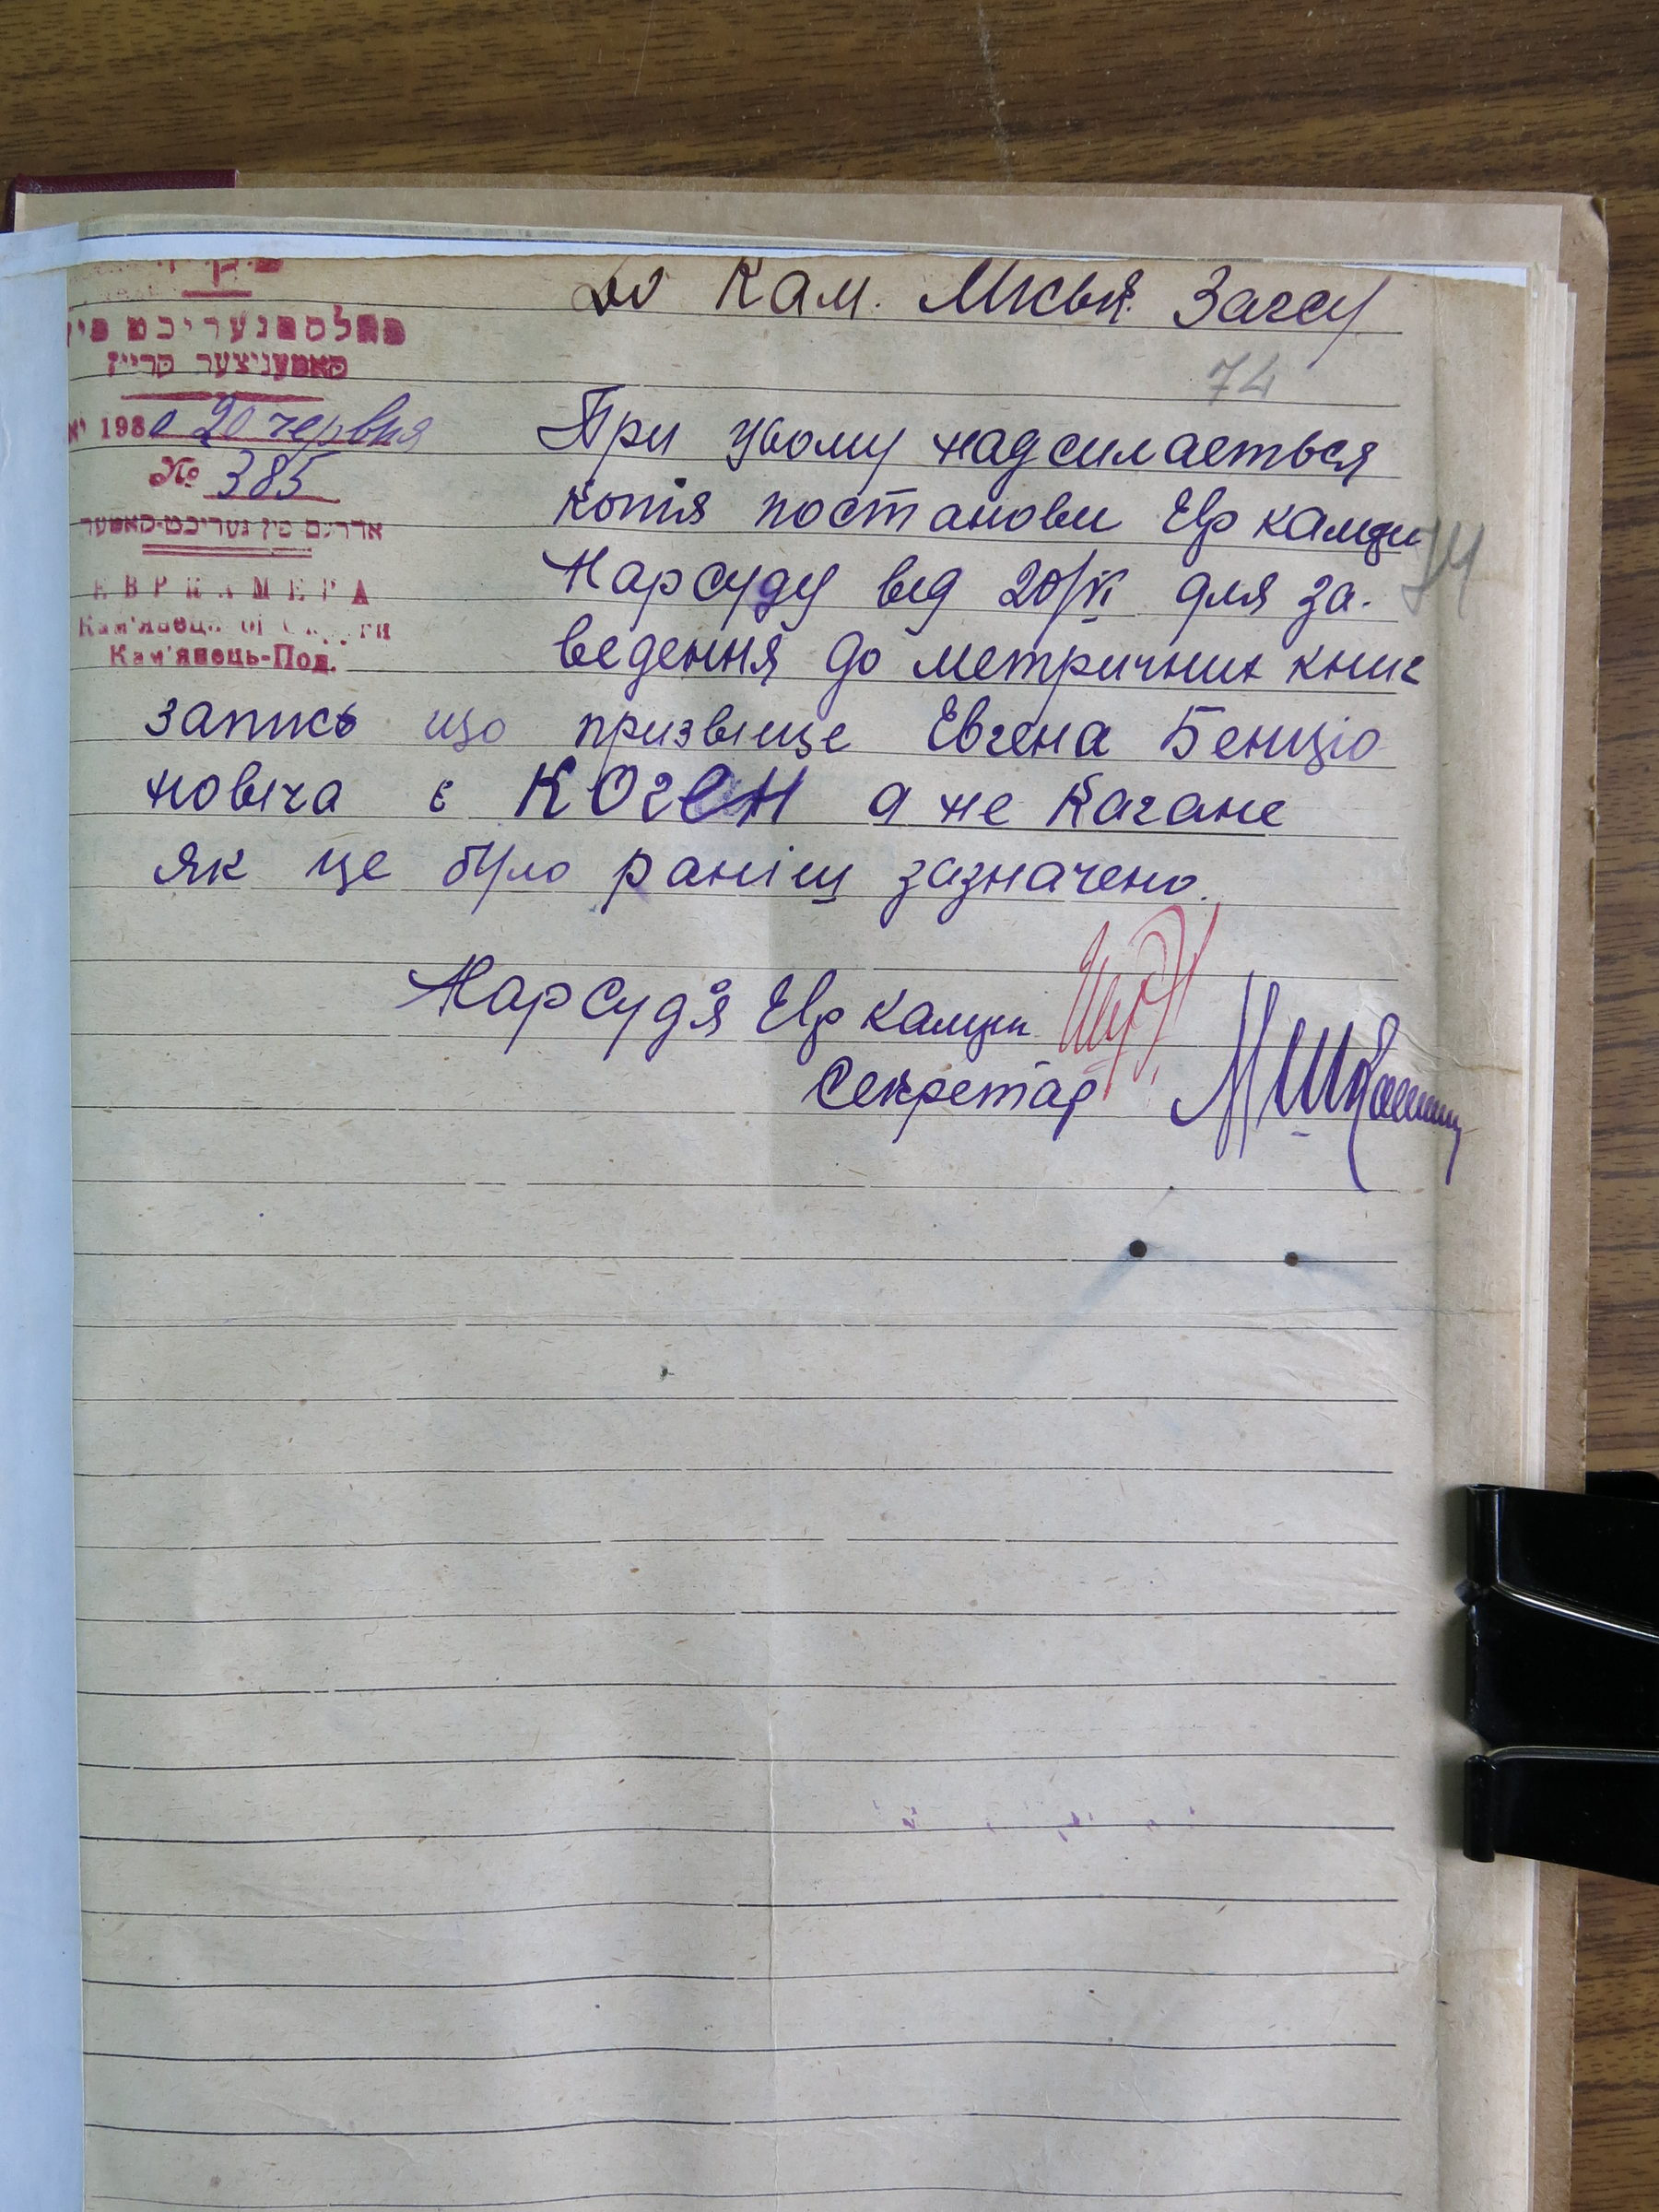 До Кам. Міськ. Загсу
פאלקסגעריכט פין
קאמעניצער קרייז
74
198 0 20 червня
№ 385
אדרעס פין געריכט-קאמער
ЕВРКАМЕРА
Кам'янецької Округи
Кам'янець-Под.
При цьому надсилається
копія постанови Евр камери
74
Нарсуду від 20/VI для за-
ведення до метричних книг
запись що призвище Евгена Бенціо
новіча є КОГЕН а не Кагане
як це було раніш зазначено.
Нарсуд'я Евр камери
Секретар